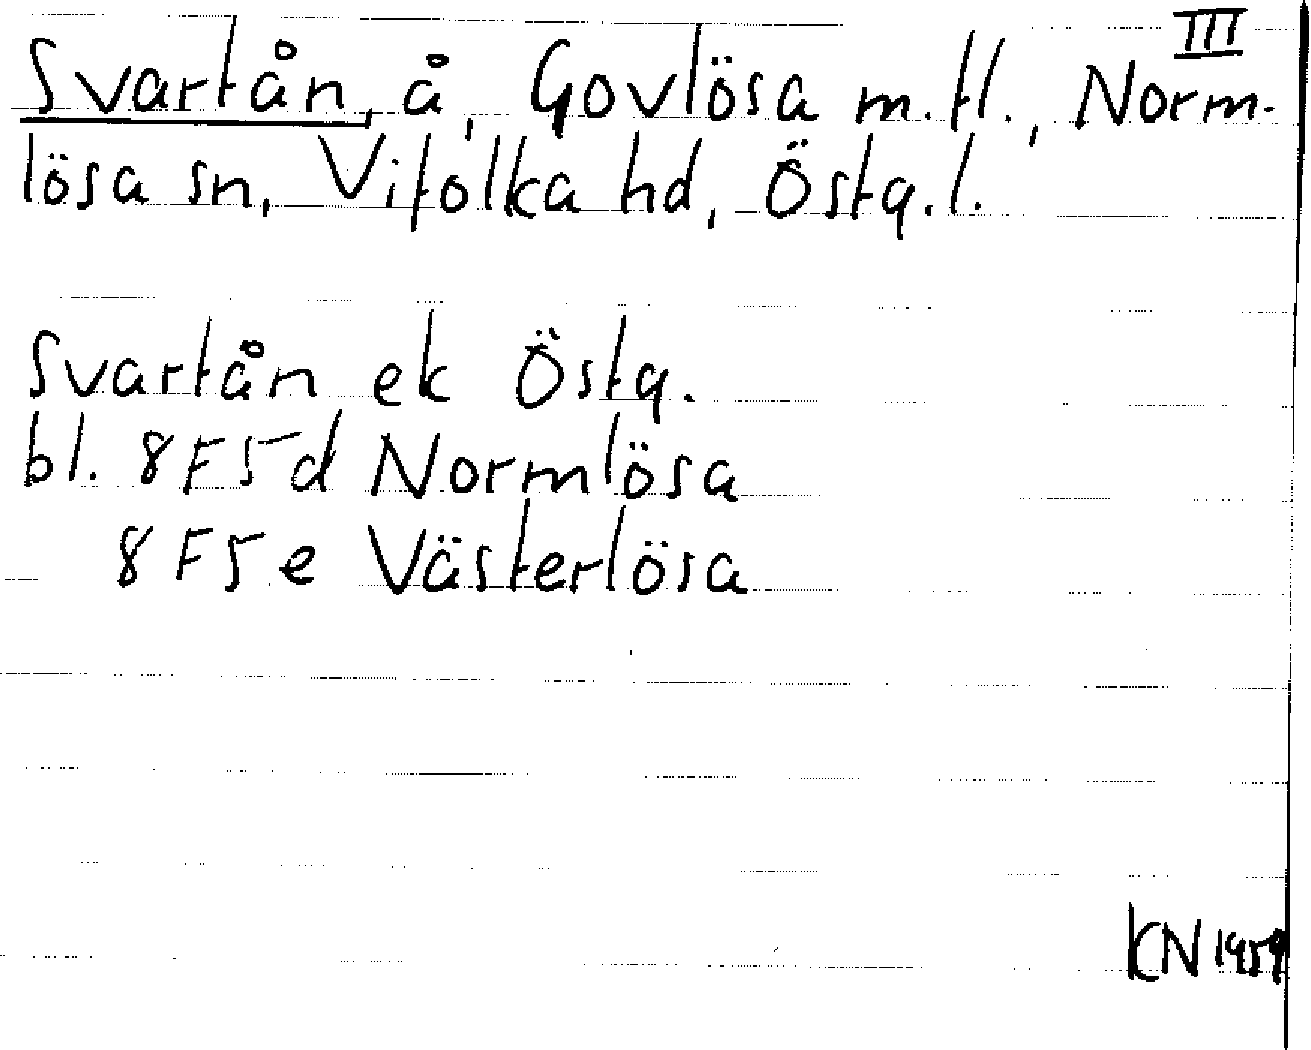 III
Svartån, å, Govlösa m.fl., Norm-
lösa sn, Vifolka hd, Östg.l.
Svartån ek Östg.
bl. 8F5d Normlösa
8F5e Västerlösa
KCN 1959